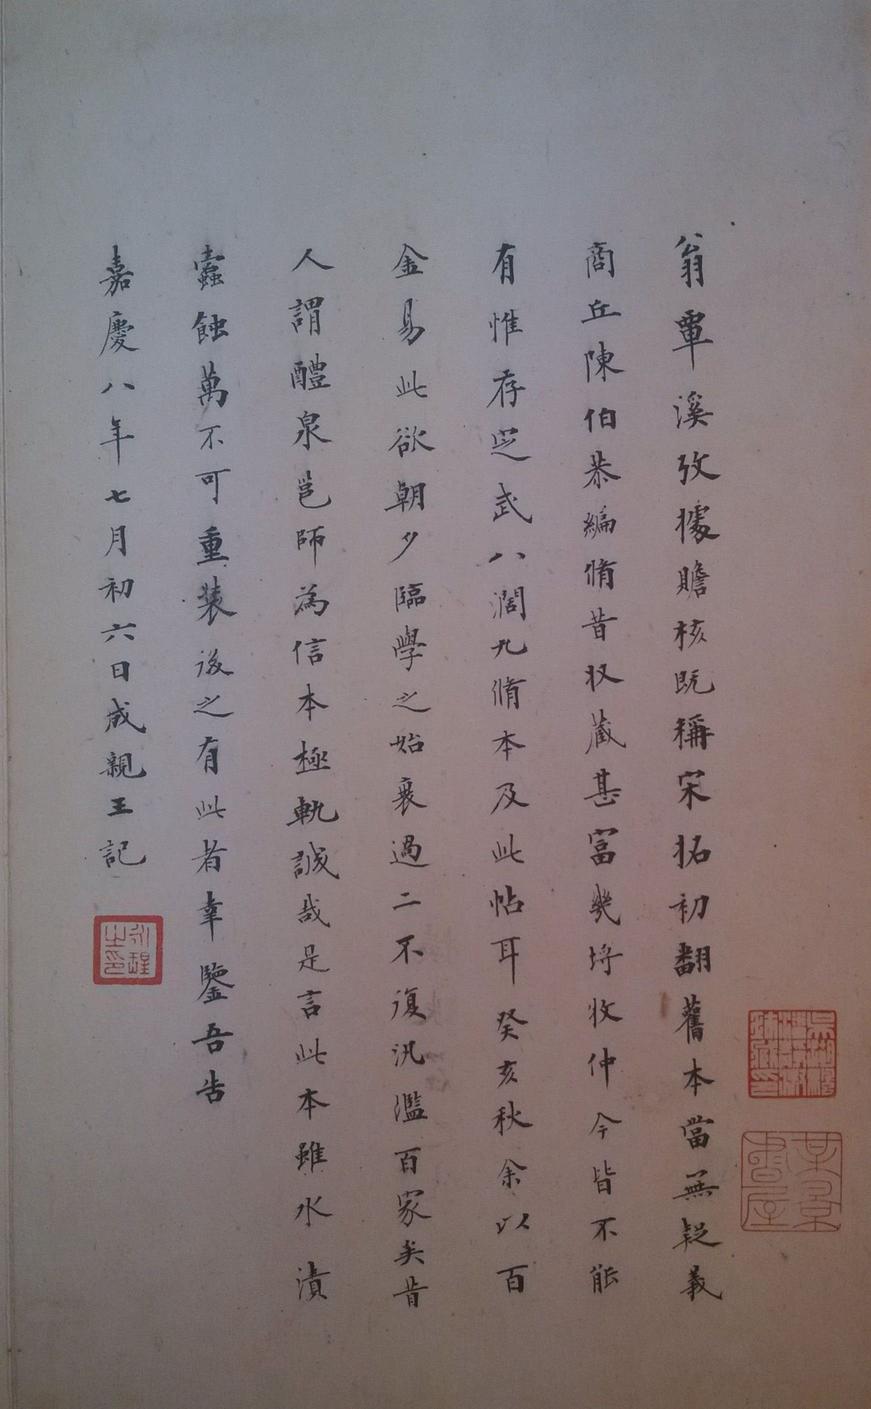 翁覃溪攷據賅核既稱宋拓初翻舊本當無疑義
商丘陳伯恭編脩昔收藏甚富幾埒牧仲今皆不能
有惟存定武八闊九脩本及此帖耳癸亥秋余以百
金易此欲朝夕臨學之始衰過二不復汎濫百家矣昔
人謂醴泉邕師為信本極軌誠哉是言此本雖水漬
蠹蝕萬不可重裝後之有此者幸鑒吾告
嘉慶八年七月初六日成親王記
永瑆之印